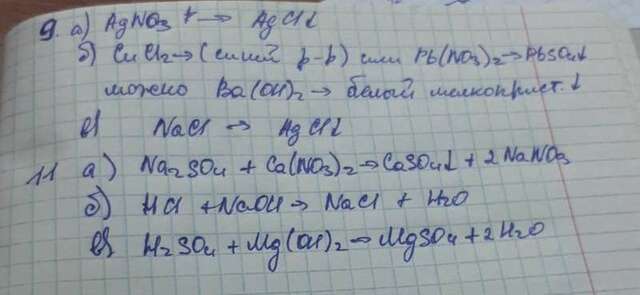 9. а) AgNO3 + → AgCl↓
б) CuCl2 → (синий р-р) или Pb(NO3)2 → PbSO4↓
можно Ba(OH)2 → белый мелкокрист.↓
в) NaCl → AgCl↓
11 а) Na2SO4 + Ca(NO3)2 → CaSO4↓ + 2NaNO3
б) HCl + NaOH → NaCl + H2O
в) H2SO4 + Mg(OH)2 → MgSO4 + 2H2O